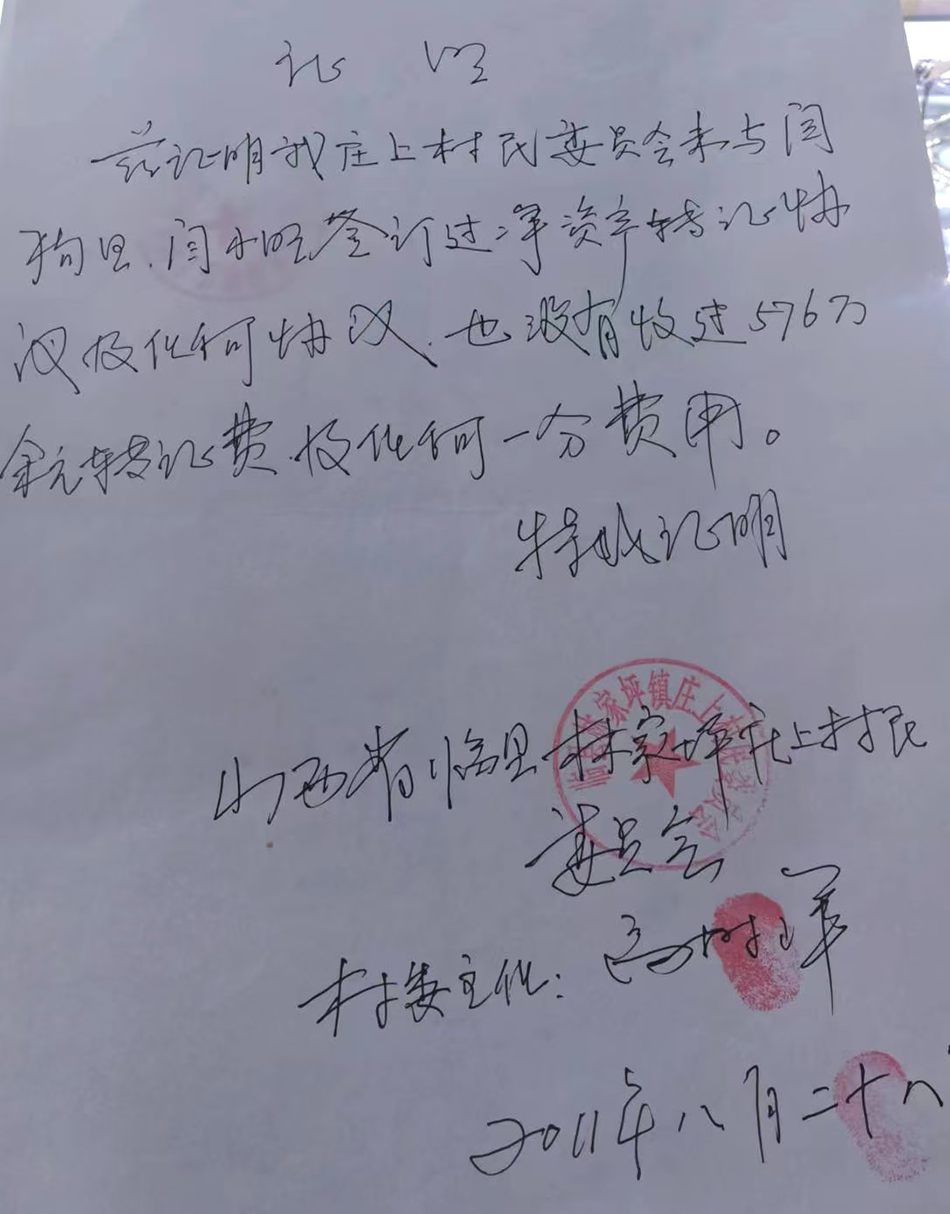 证 明
兹证明我庄上村民委员会未与闫
狗旦、闫小旺签订过净资产转让协
议及任何协议、也没有收过576万
余元转让费、及任何一分费用。
特此证明
山西省临县林家坪庄上村民
委员会
林家坪镇庄上村
村委主任:高树军
2011年八月二十八